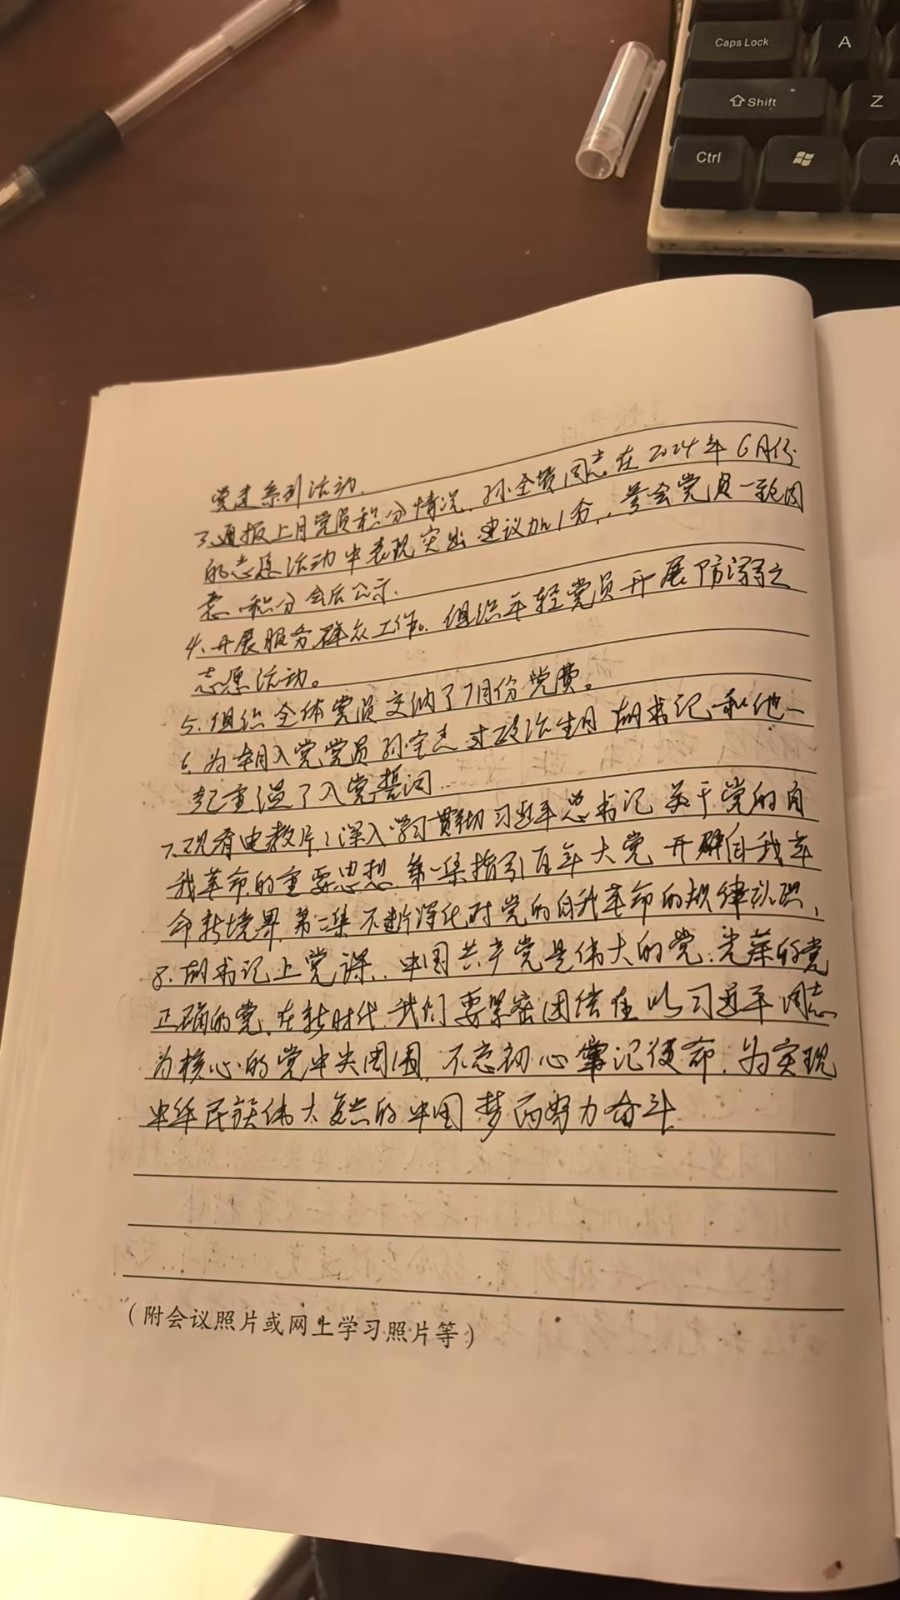 Caps Lock
A
Shift
Z
Ctrl
党建系列活动.
3.通报上月党员积分情况,孙全赞同志在2024年6月份
的志愿活动中表现突出建议加1分,参会党员一致同
意.积分会后公示.
4.开展服务群众工作。组织年轻党员开展防溺之
志愿活动。
5.组织全体党员交纳了7月份党费。
6.为本月入党党员孙宝志过政治生日,胡书记和他一
起重温了入党誓词.
7.观看电教片:深入学习贯彻习近平总书记关于党的自
我革命的重要思想 第一集指引百年大党开辟自我革
命新境界 第二集不断深化对党的自我革命的规律认识,
8.胡书记上党课,中国共产党是伟大的党,光荣的党
正确的党,在新时代我们要紧密团结在以习近平同志
为核心的党中央周围,不忘初心牢记使命,为实现
中华民族伟大复兴的中国梦而努力奋斗
(附会议照片或网上学习照片等)